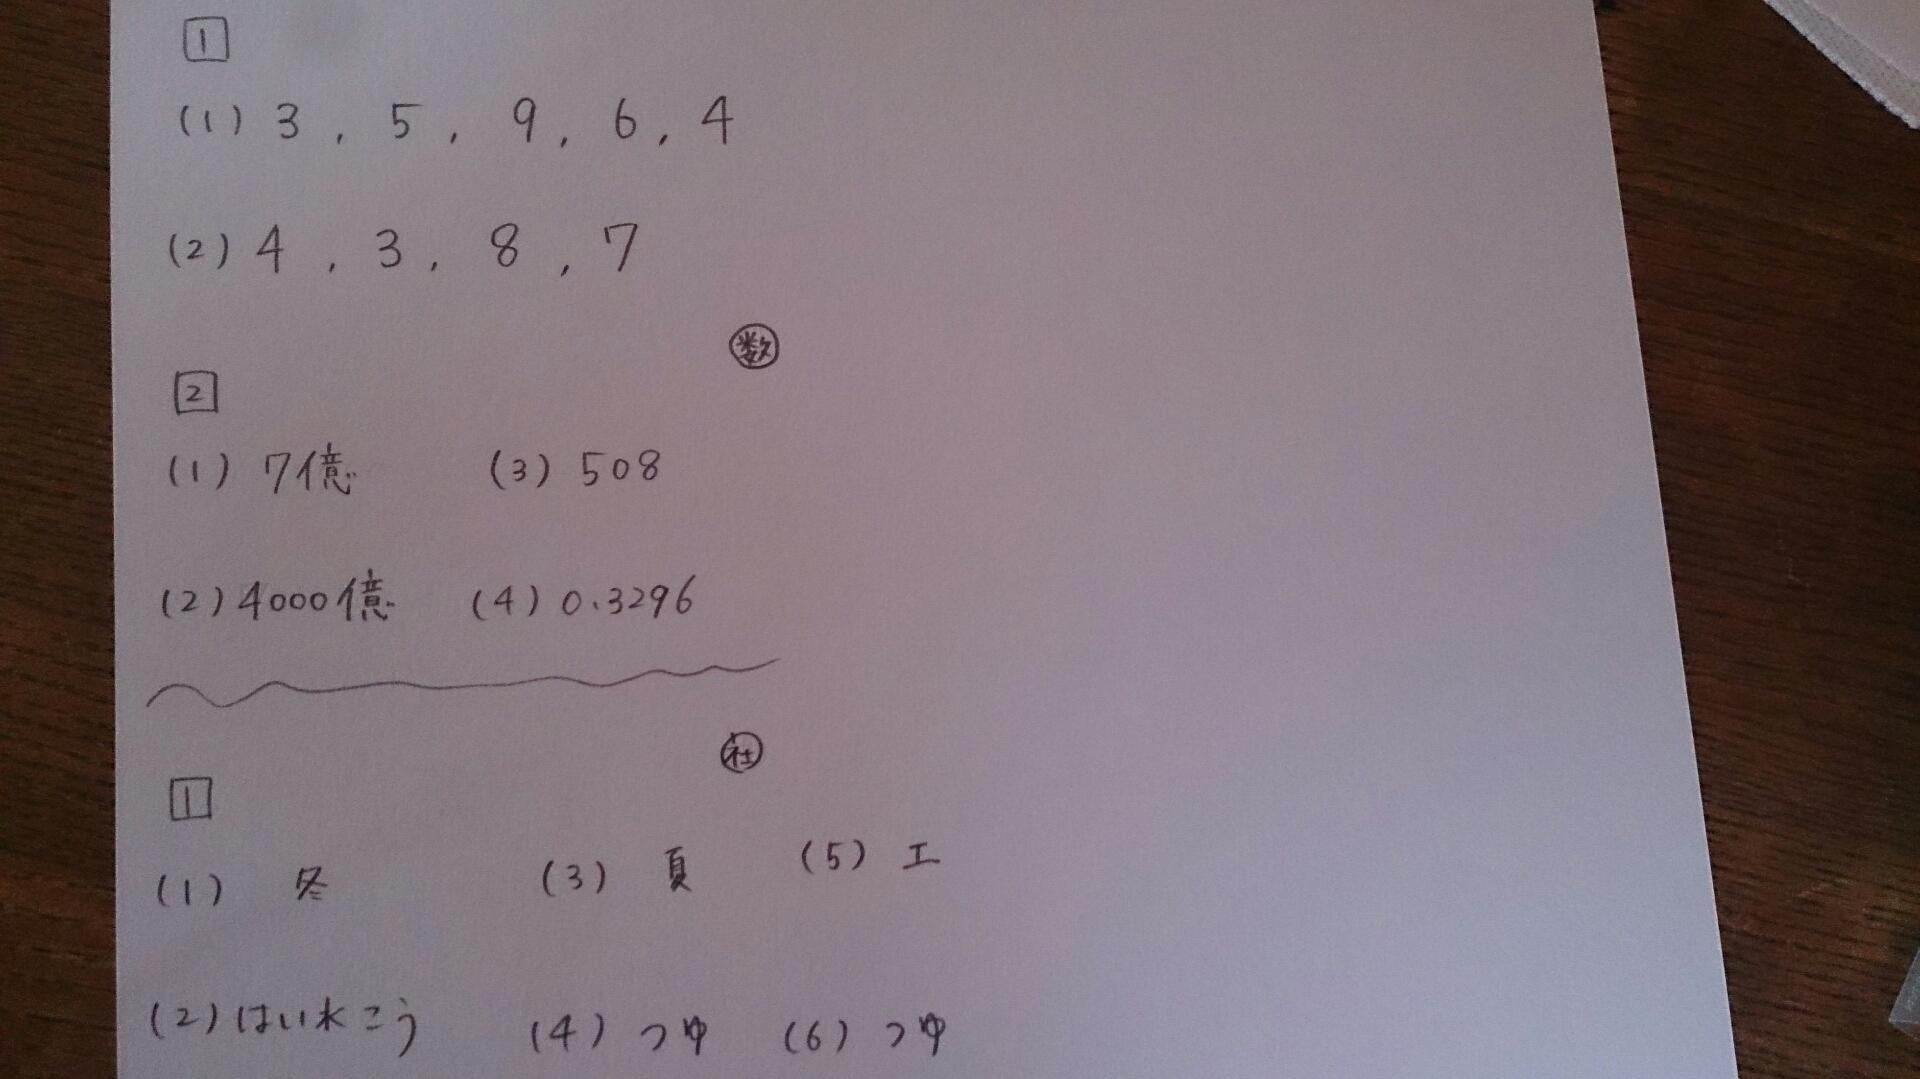 1
(1) 3, 5, 9, 6, 4
(2) 4, 3, 8, 7
数
2
(1) 7億 (3) 508
(2) 4000億 (4) 0.3296
社
1
(1) 冬 (3) 夏 (5) エ
(2) はい水こう (4) つゆ (6) つゆ